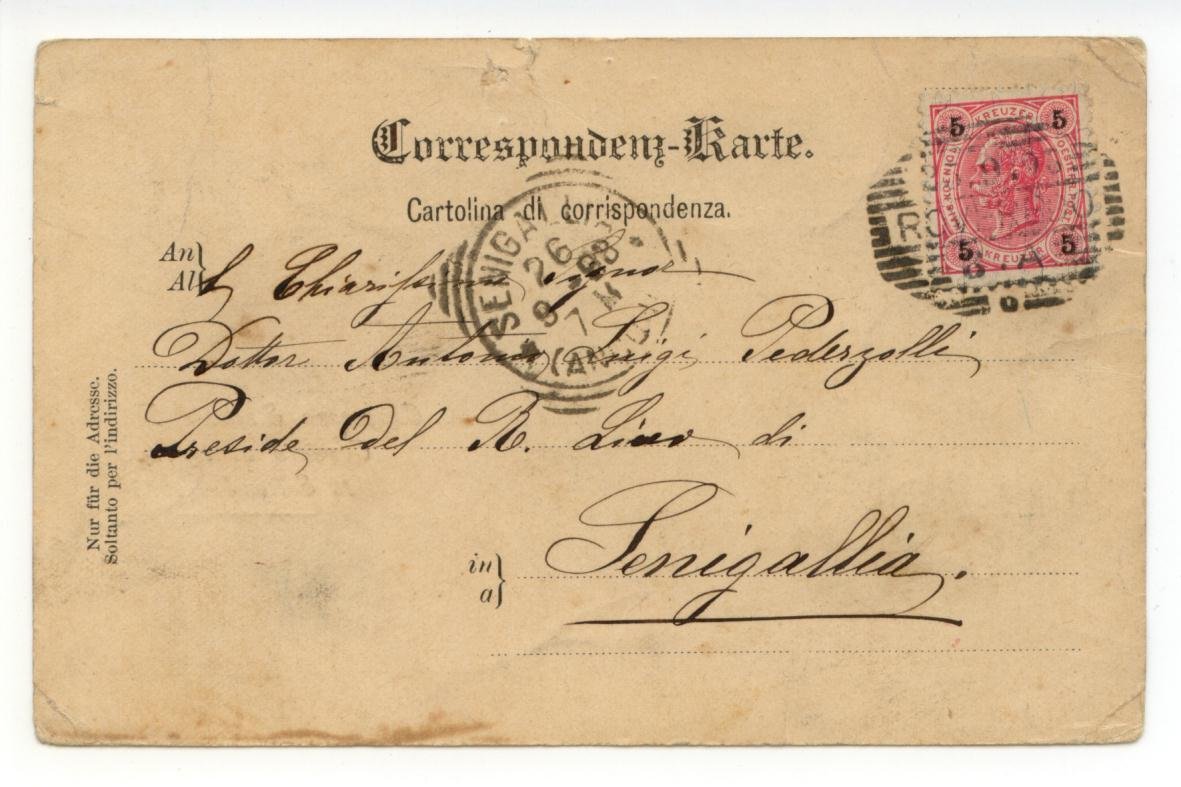 Correspondenz-Karte.
Cartolina di corrispondenza.
An
Al
Chiarissimo Signor
Dottor Antonio Luigi Pederzolli
Preside del R. Liceo di
in
a
Senigallia.
Nur für die Adresse.
Soltanto per l'indirizzo.
SENIGALLIA
26
8-98
7 M
5 KREUZER 5
5 KREUZER 5